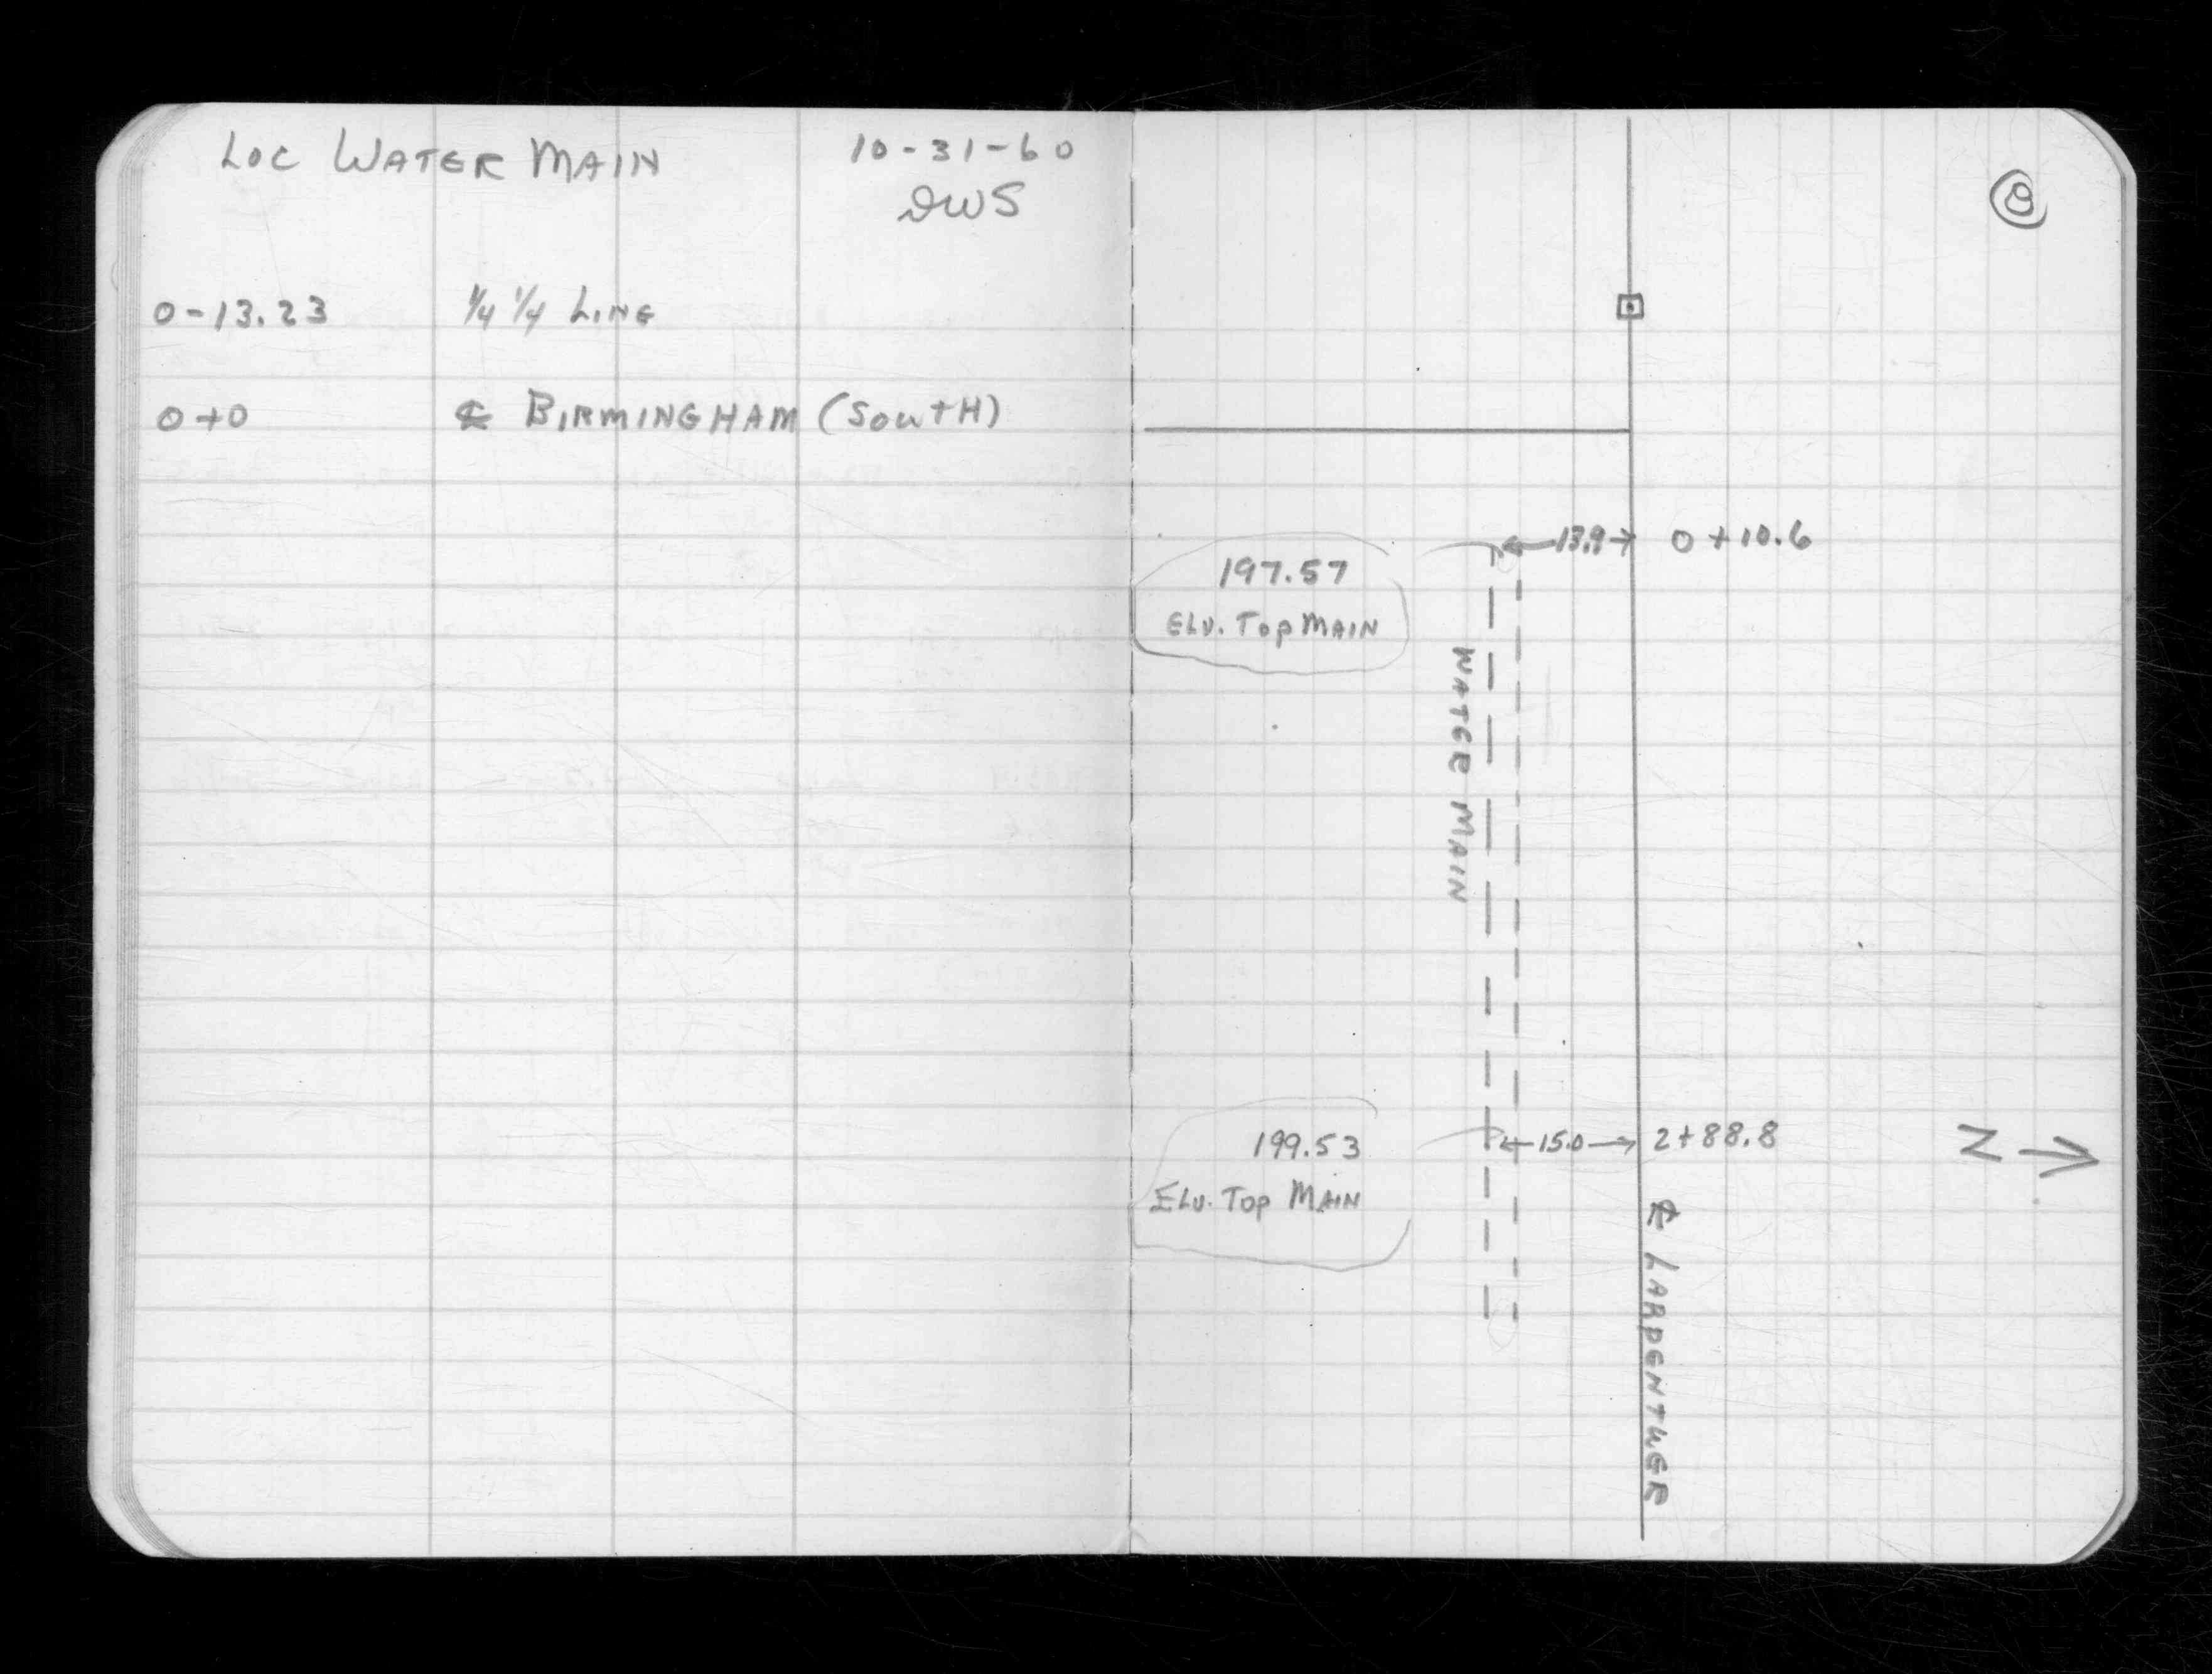 LOC WATER MAIN 10-31-60
DWS
0-13.23 1/4 1/4 LINE
0+0 ℄ BIRMINGHAM (SOUTH)
8
13.9 0+10.6
197.57
ELV. TOP MAIN
WATER MAIN
199.53
ELV. TOP MAIN
15.0 2+88.8
N
℄ LARPENTUER